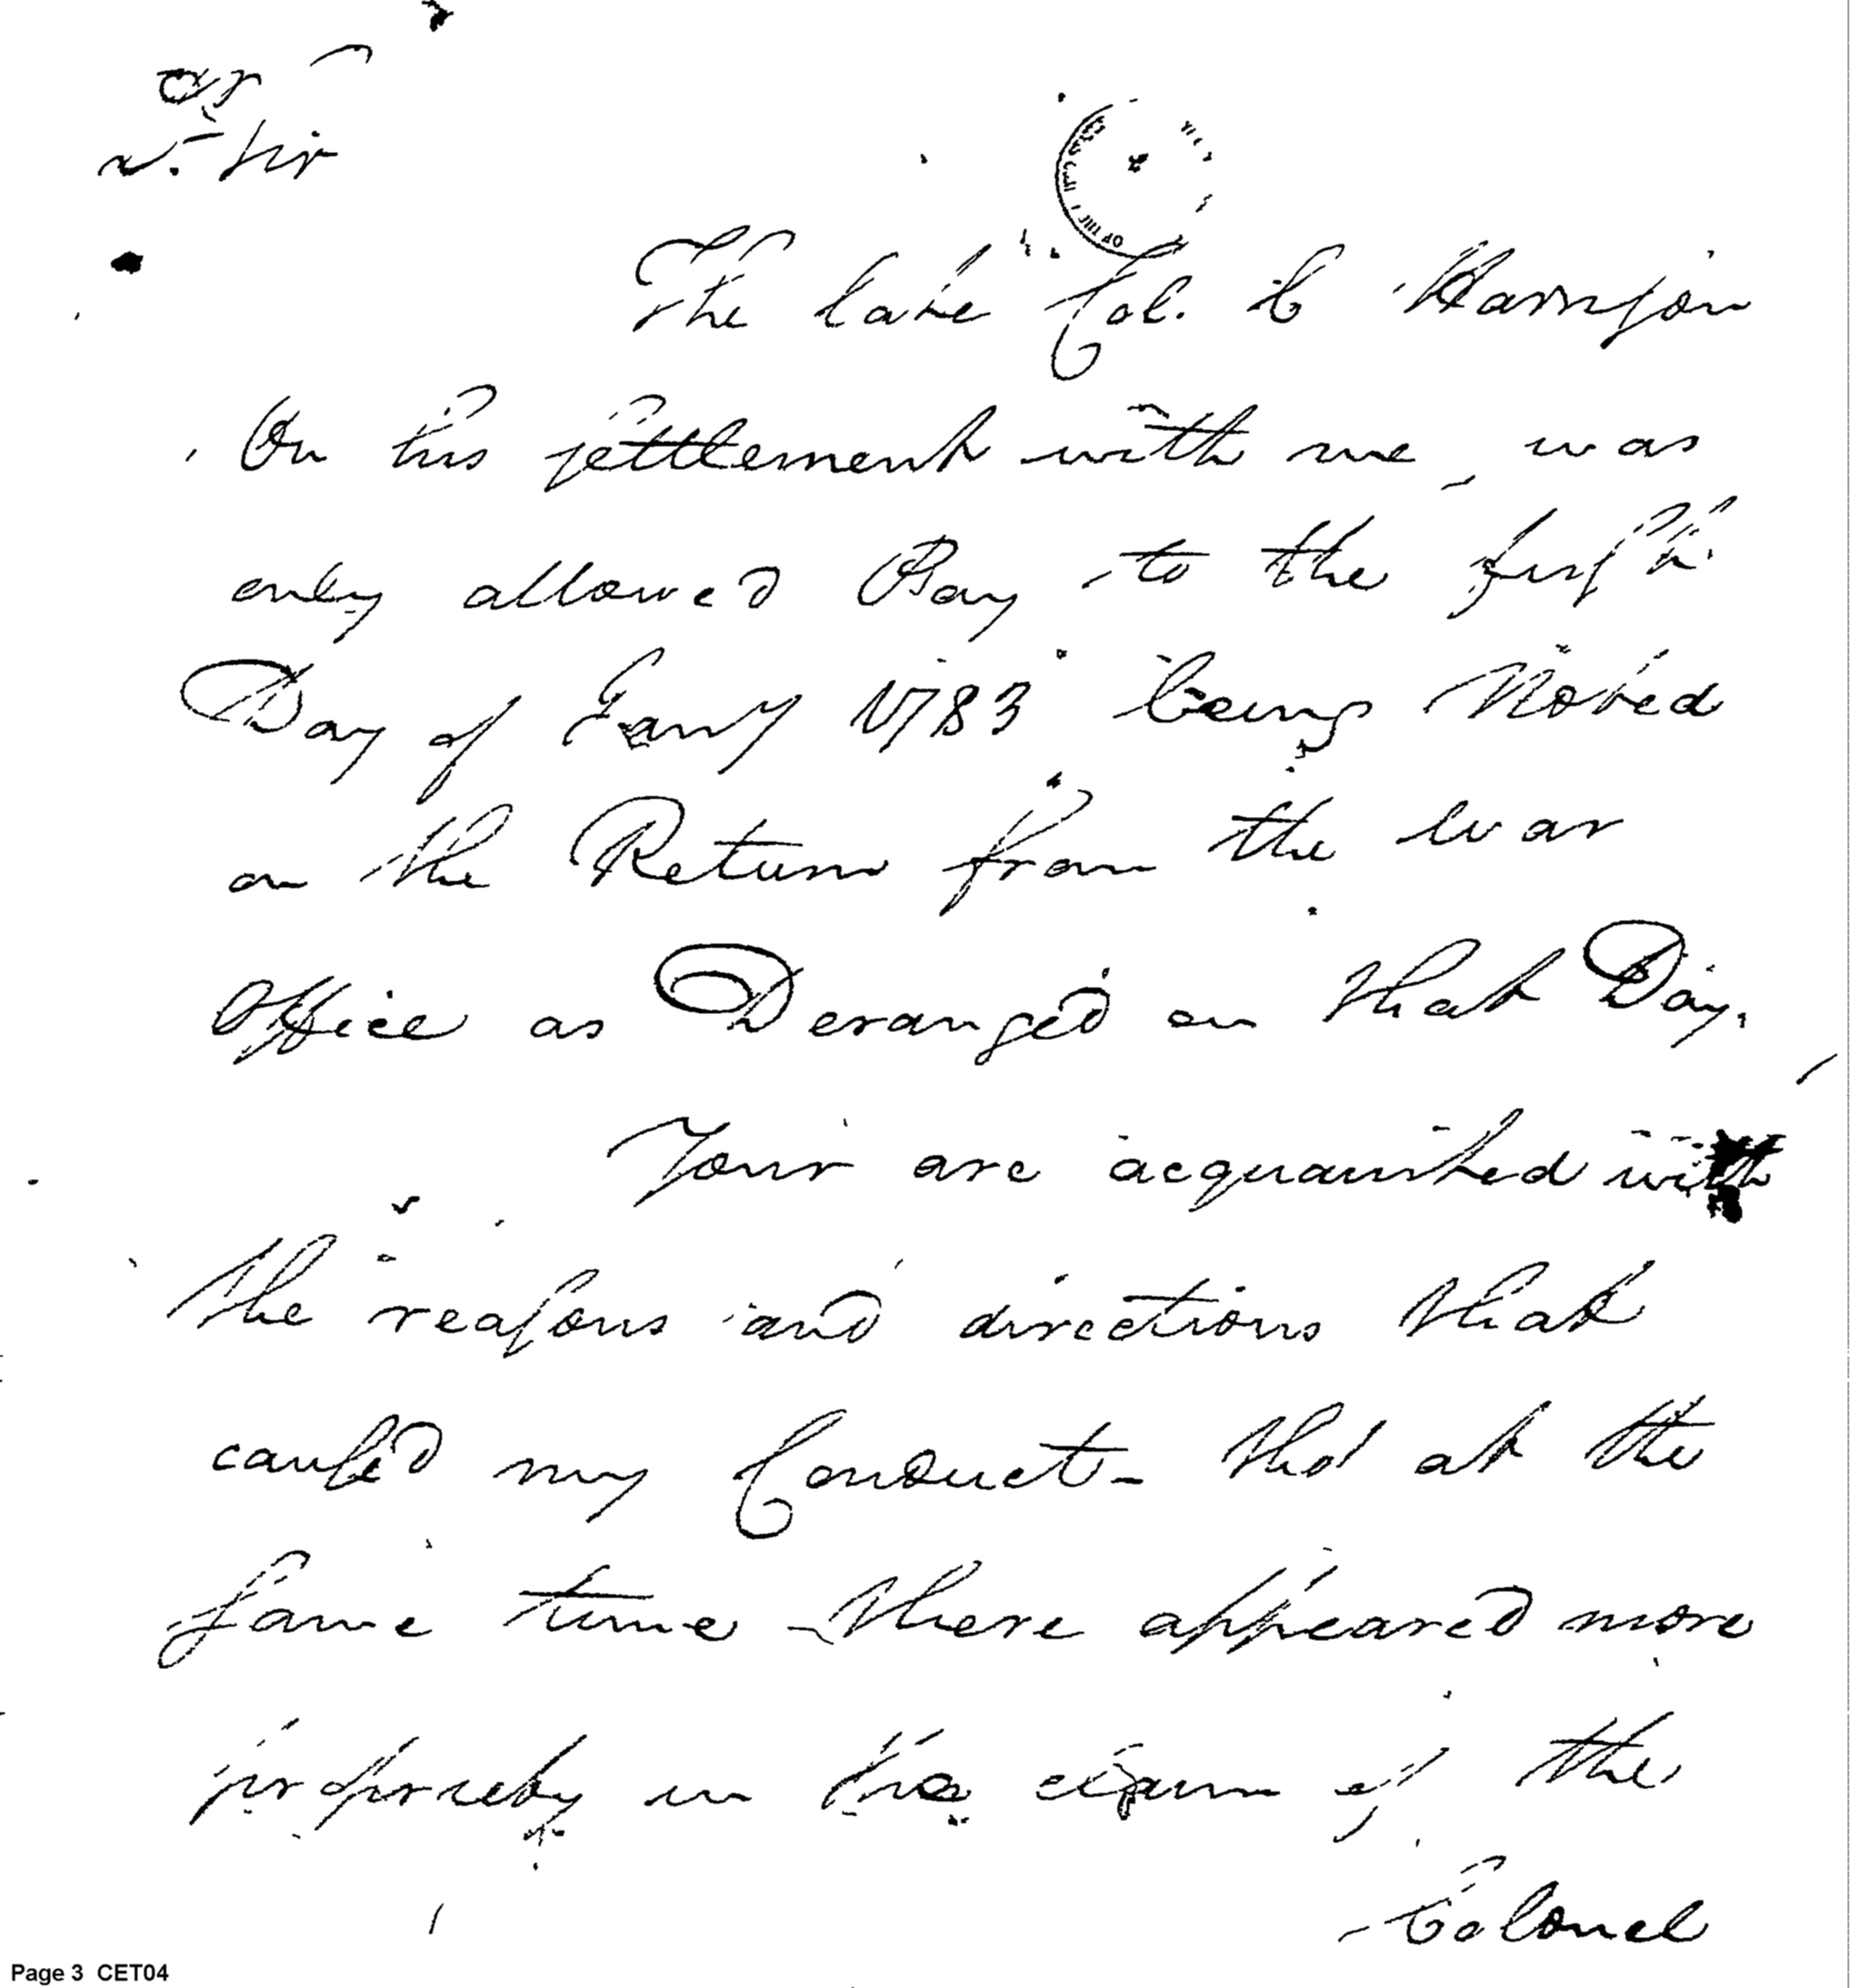 Sir
The late Col. C Harrison
On his settlement with me, was
only allowed Pay to the first
Day of Jany 1783 being Noted
on the Return from the War
Office as Deranged on that Day.
Your are acquainted with
the reasons and directions that
caused my Conduct- tho' at the
same time there appeared more
propriety in the claim of the
Colonel
Page 3 CET04